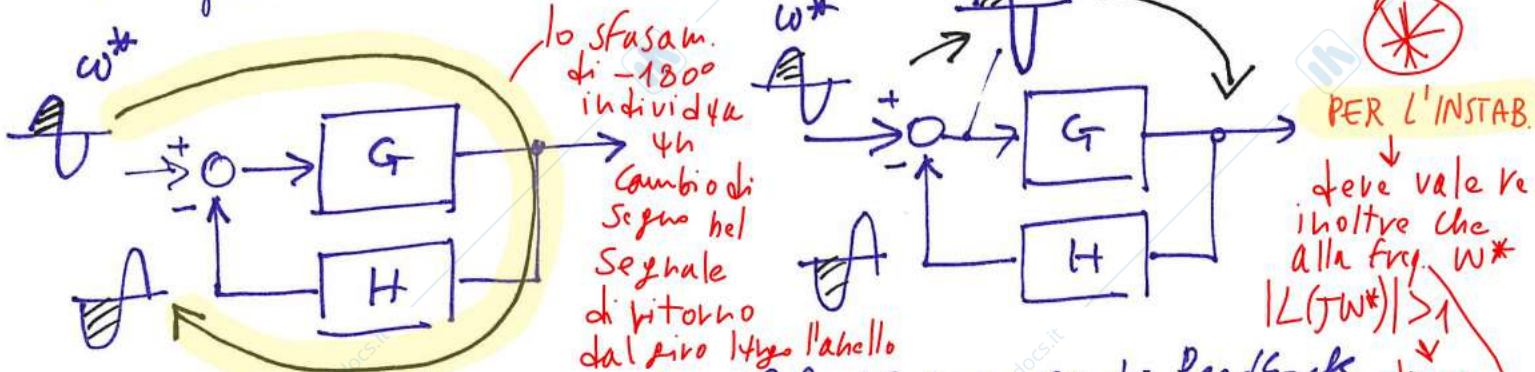 ω*
+
-
G
H
lo sfasam.
di -180°
individua
un
cambio di
segno nel
segnale
di ritorno
dal giro lungo l'anello
ω*
+
-
G
H
PER L'INSTAB.
deve valere
inoltre che
alla freq. ω*
|L(Jω*)|>1
feedback